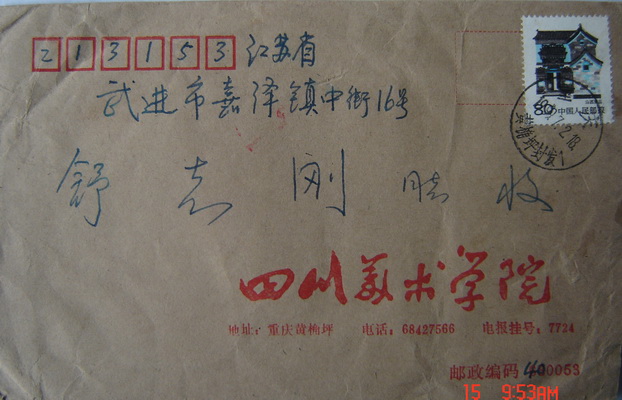 213153 江苏省
武进市嘉泽镇中街16号
舒志刚 收
80 中国人民邮政
四川美术学院
地址：重庆黄桷坪 电话：68427566 电报挂号：7724
邮政编码 400053
15 9:53AM